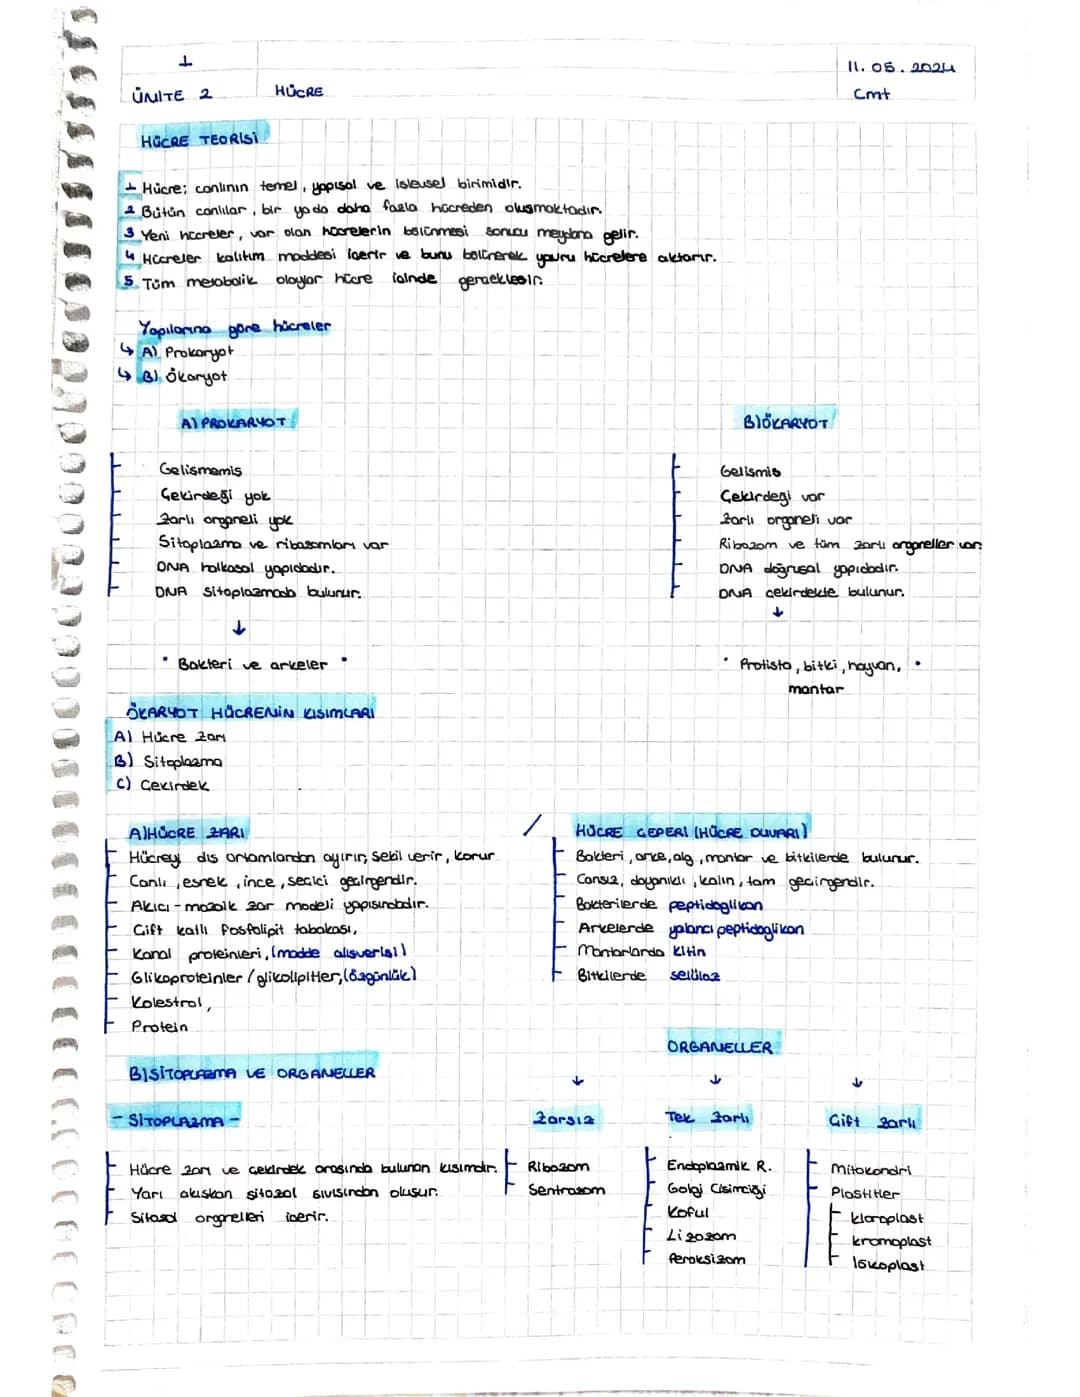 1
11.05.2024
ÜNİTE 2
HÜCRE
Cmt
HÜCRE TEORİSİ
1 Hücre; canlının temel, yapısal ve işlevsel birimidir.
2 Bütün canlılar, bir ya da daha fazla hücreden oluşmaktadır.
3 Yeni hücreler, var olan hücrelerin bölünmesi sonucu meydana gelir.
4 Hücreler kalıtım maddesi içerir ve bunu bölünerek yavru hücrelere aktarır.
5 Tüm metabolik olaylar hücre içinde gerçekleşir.
Yapılarına göre hücreler
↳ A) Prokaryot
↳ B) Ökaryot
A) PROKARYOT
Gelişmemiş
Çekirdeği yok
Zarlı organeli yok
Sitoplazma ve ribozomları var
DNA halkasal yapıdadır.
DNA sitoplazmada bulunur.
↓
• Bakteri ve arkeler •
B) ÖKARYOT
Gelişmiş
Çekirdeği var
Zarlı organeli var
Ribozom ve tüm zarlı organeller var.
DNA doğrusal yapıdadır.
DNA çekirdekte bulunur.
↓
• Protista, bitki, hayvan, •
mantar
ÖKARYOT HÜCRENİN KISIMLARI
A) Hücre zarı
B) Sitoplazma
C) Çekirdek
A) HÜCRE ZARI
Hücreyi dış ortamlardan ayırır, şekil verir, korur.
Canlı, esnek, ince, seçici geçirgendir.
Akıcı - mozaik zar modeli yapısındadır.
Çift katlı fosfolipit tabakası,
Kanal proteinleri, (madde alışverişi)
Glikoproteinler / glikolipitler, (özgünlük)
Kolestrol,
Protein
/
HÜCRE ÇEPERİ (HÜCRE DUVARI)
Bakteri, arke, alg, mantar ve bitkilerde bulunur.
Cansız, dayanıklı, kalın, tam geçirgendir.
Bakterilerde peptidoglikan
Arkelerde yalancı peptidoglikan
Mantarlarda kitin
Bitkilerde selüloz
B) SİTOPLAZMA VE ORGANELLER
- SİTOPLAZMA -
Hücre zarı ve çekirdek arasında bulunan kısımdır.
Yarı akışkan sitozol sıvısından oluşur.
Sitosol organelleri içerir.
ORGANELLER
↓ ↓ ↓
Zarsız
Ribozom
Sentrozom
Tek zarlı
Endoplazmik R.
Golgi Cisimciği
Koful
Lizozom
Peroksizom
Çift zarlı
Mitokondri
Plastitler
kloroplast
kromoplast
lökoplast